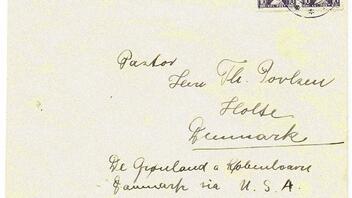 Pastor
Herr Th. Povlsen
Holte
Denmark
De Grønland a København
Danmark via U. S. A.